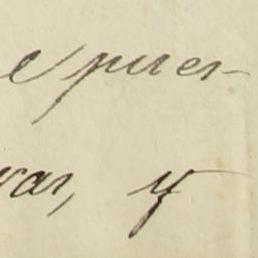 e pues-
var, y